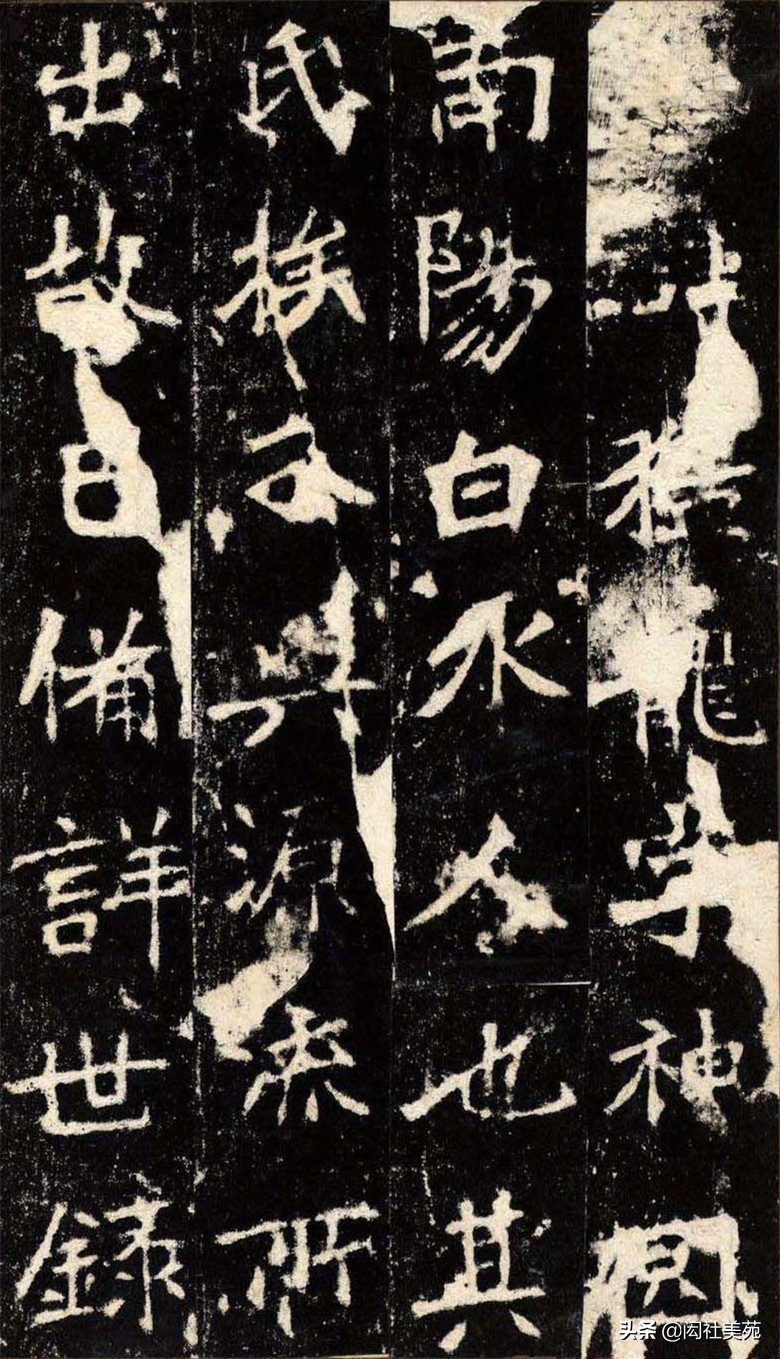 猛龍字神冏
南陽白水人也其
氏族分興源流所
出故已備詳世録
头条 @闳社美苑